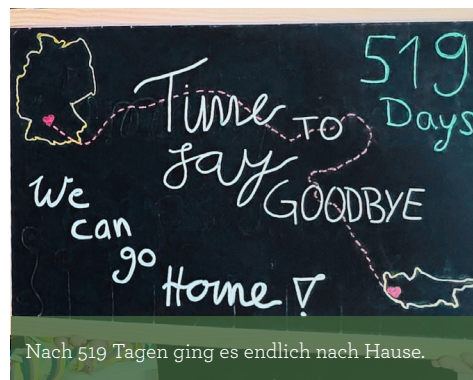 519
Days
Time TO
say
GOODBYE
We
can
go
Home!
Nach 519 Tagen ging es endlich nach Hause.